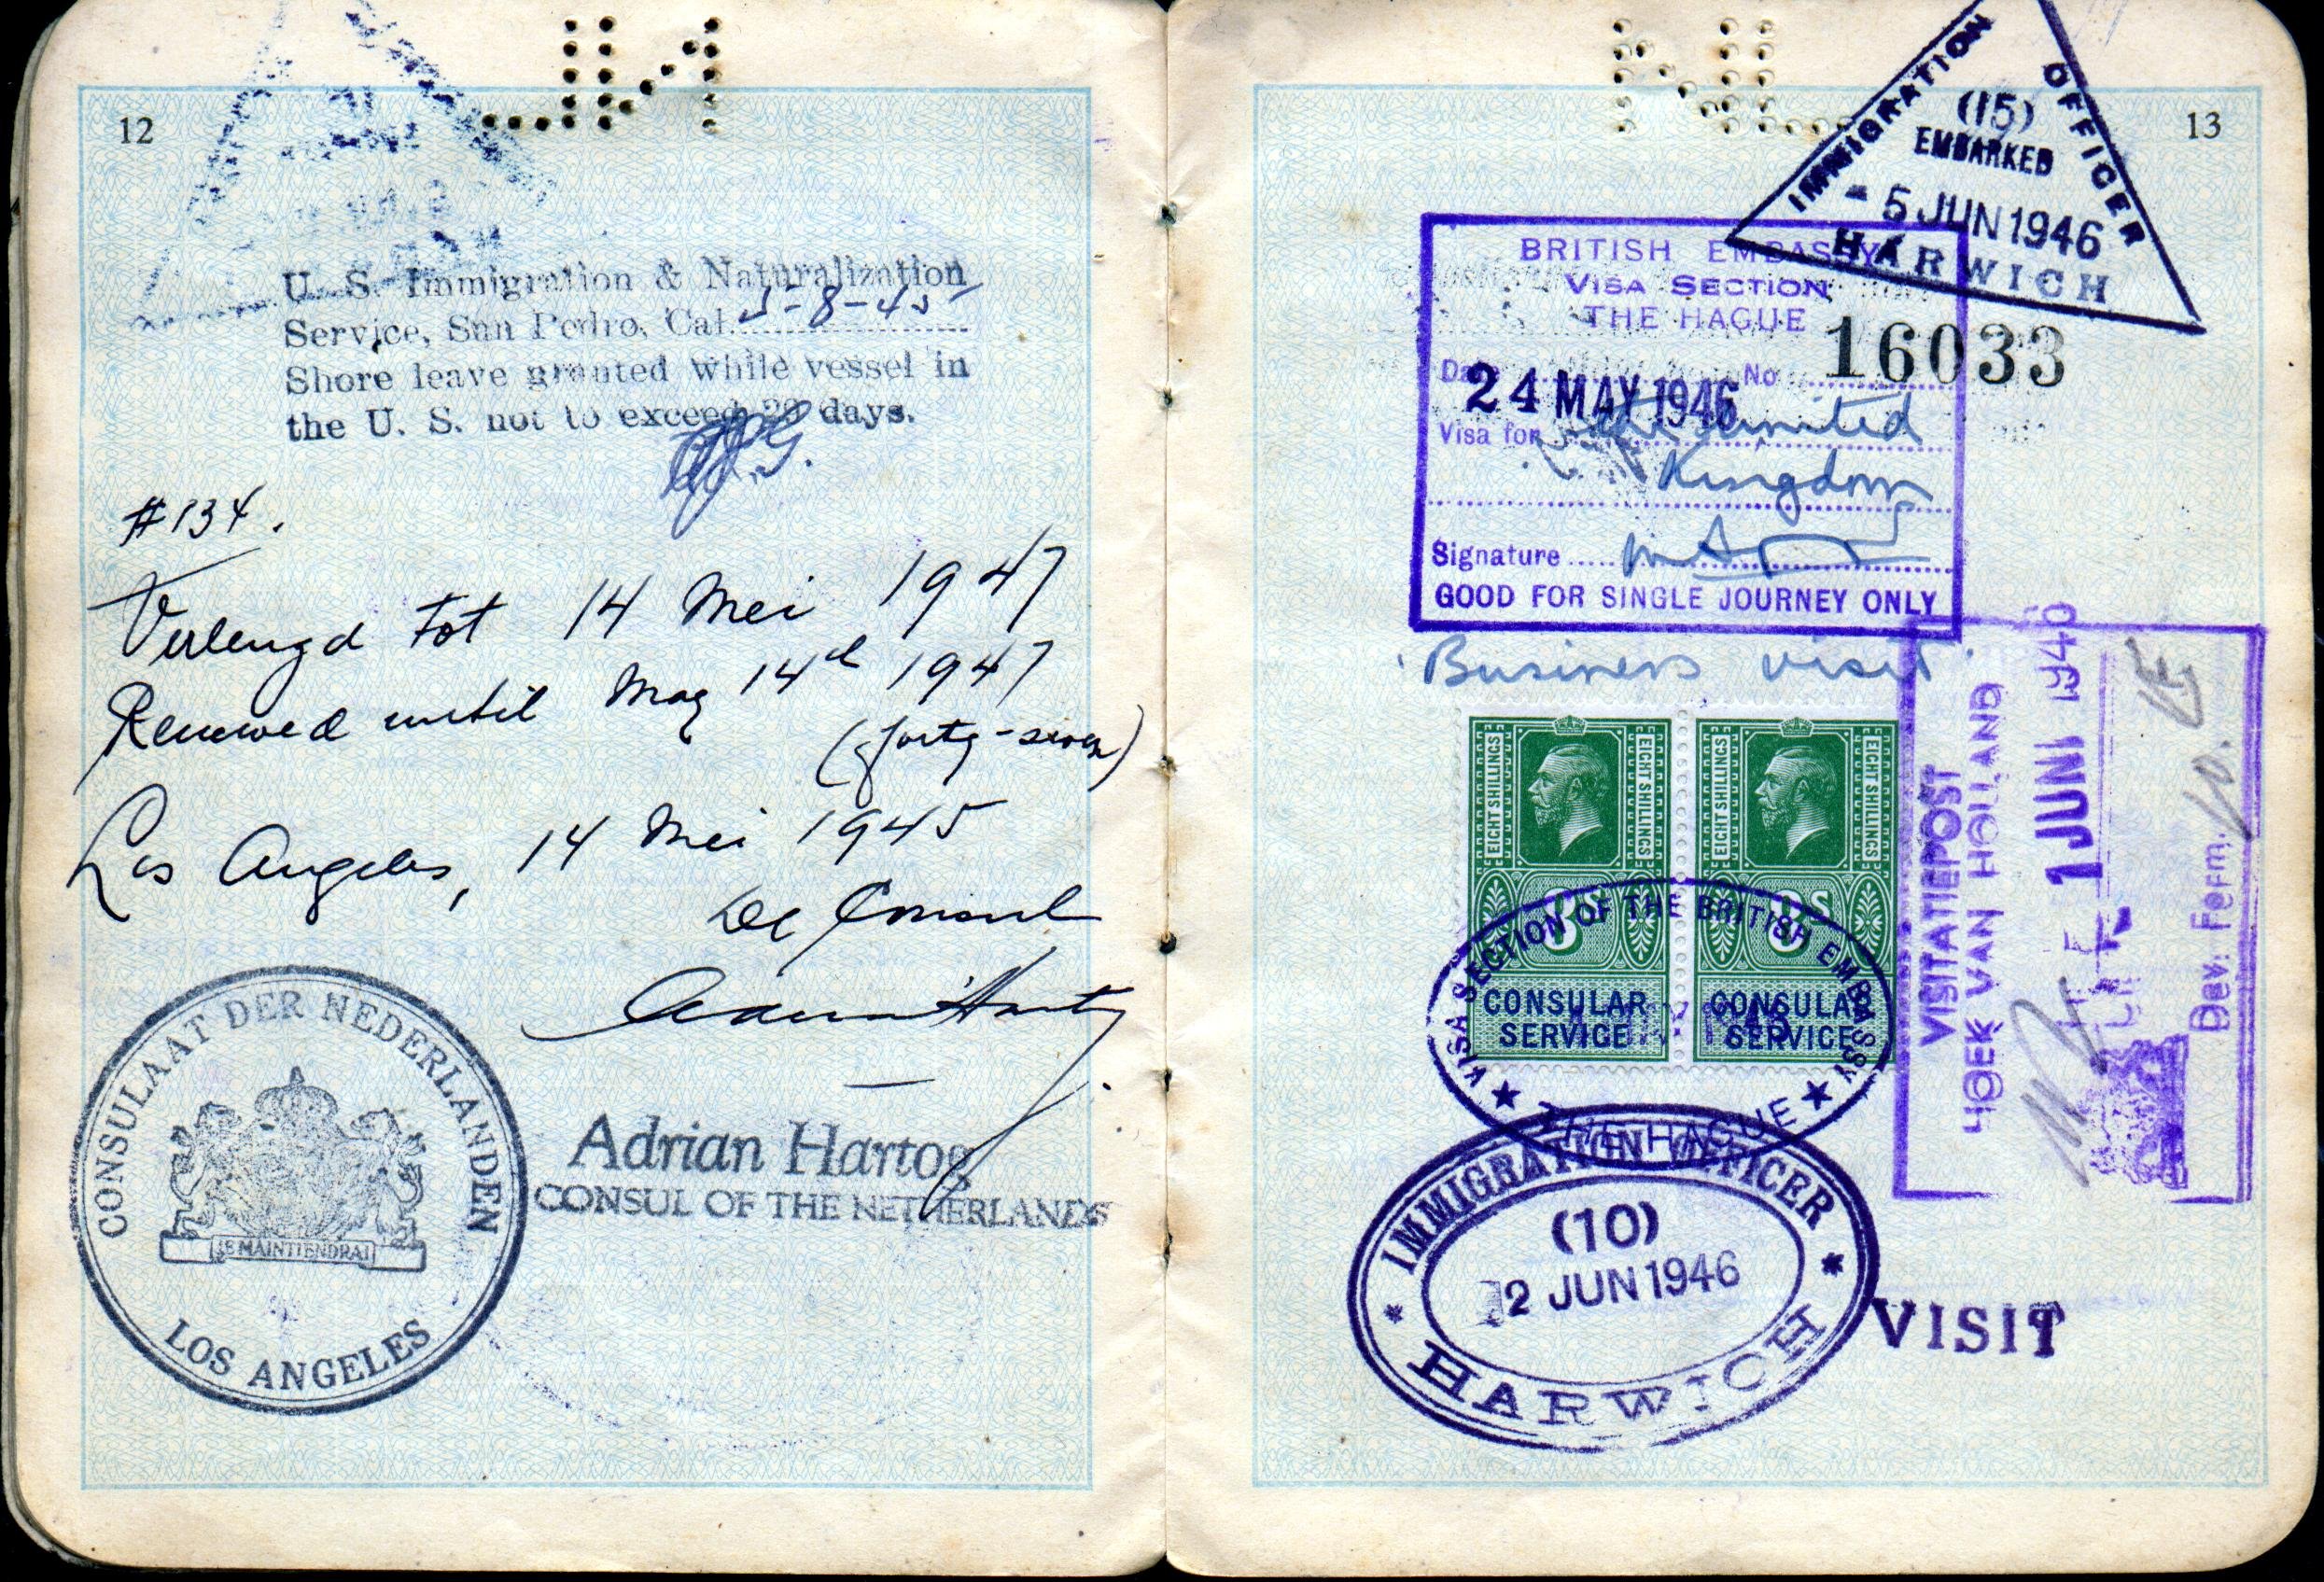 12
U. S. Immigration & Naturalization
Service, San Pedro, Cal. 5-8-45
Shore leave granted while vessel in
the U. S. not to exceed 29 days.
#134.
Verlengd tot 14 Mei 1947
Renewed until May 14th 1947
(forty-seven)
Los Angeles, 14 Mei 1945
De Consul
CONSULAAT DER NEDERLANDEN
JE MAINTIENDRAI
LOS ANGELES
Adrian Hartog
CONSUL OF THE NETHERLANDS
13
IMMIGRATION OFFICER
(15)
EMBARKED
- 5 JUN 1946
HARWICH
BRITISH EMBASSY
VISA SECTION
THE HAGUE
Date 24 MAY 1946 No. 16033
Visa for the United
Kingdom
Signature
GOOD FOR SINGLE JOURNEY ONLY
"Business visit"
EIGHT SHILLINGS EIGHT SHILLINGS
EIGHT SHILLINGS EIGHT SHILLINGS
8s 8s
CONSULAR SERVICE
CONSULAR SERVICE
VISA SECTION OF THE BRITISH EMBASSY
★ THE HAGUE ★
VISITATIEPOST
HOEK VAN HOLLAND
1 JUNI 1946
Dev. Form.
IMMIGRATION OFFICER
(10)
2 JUN 1946
* HARWICH *
VISIT